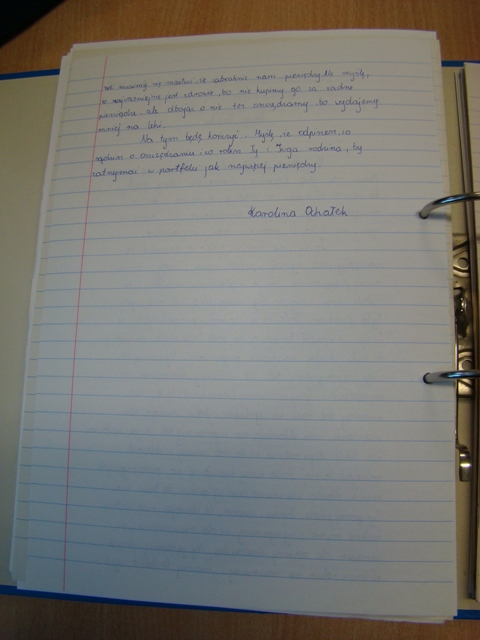 się martwić, że zabraknie nam pieniędzy. Ale myślę,
że najważniejsze jest zdrowie, bo nie kupimy go za żadne
pieniądze, ale dbając o nie też oszczędzamy, bo wydajemy
mniej na leki.
Na tym będę kończyć. Myślę, że odpiszesz, co
sądzisz o oszczędzaniu i co robisz Ty i Twoja rodzina, by
zatrzymać w portfelu jak najwięcej pieniędzy.
Karolina Chałek